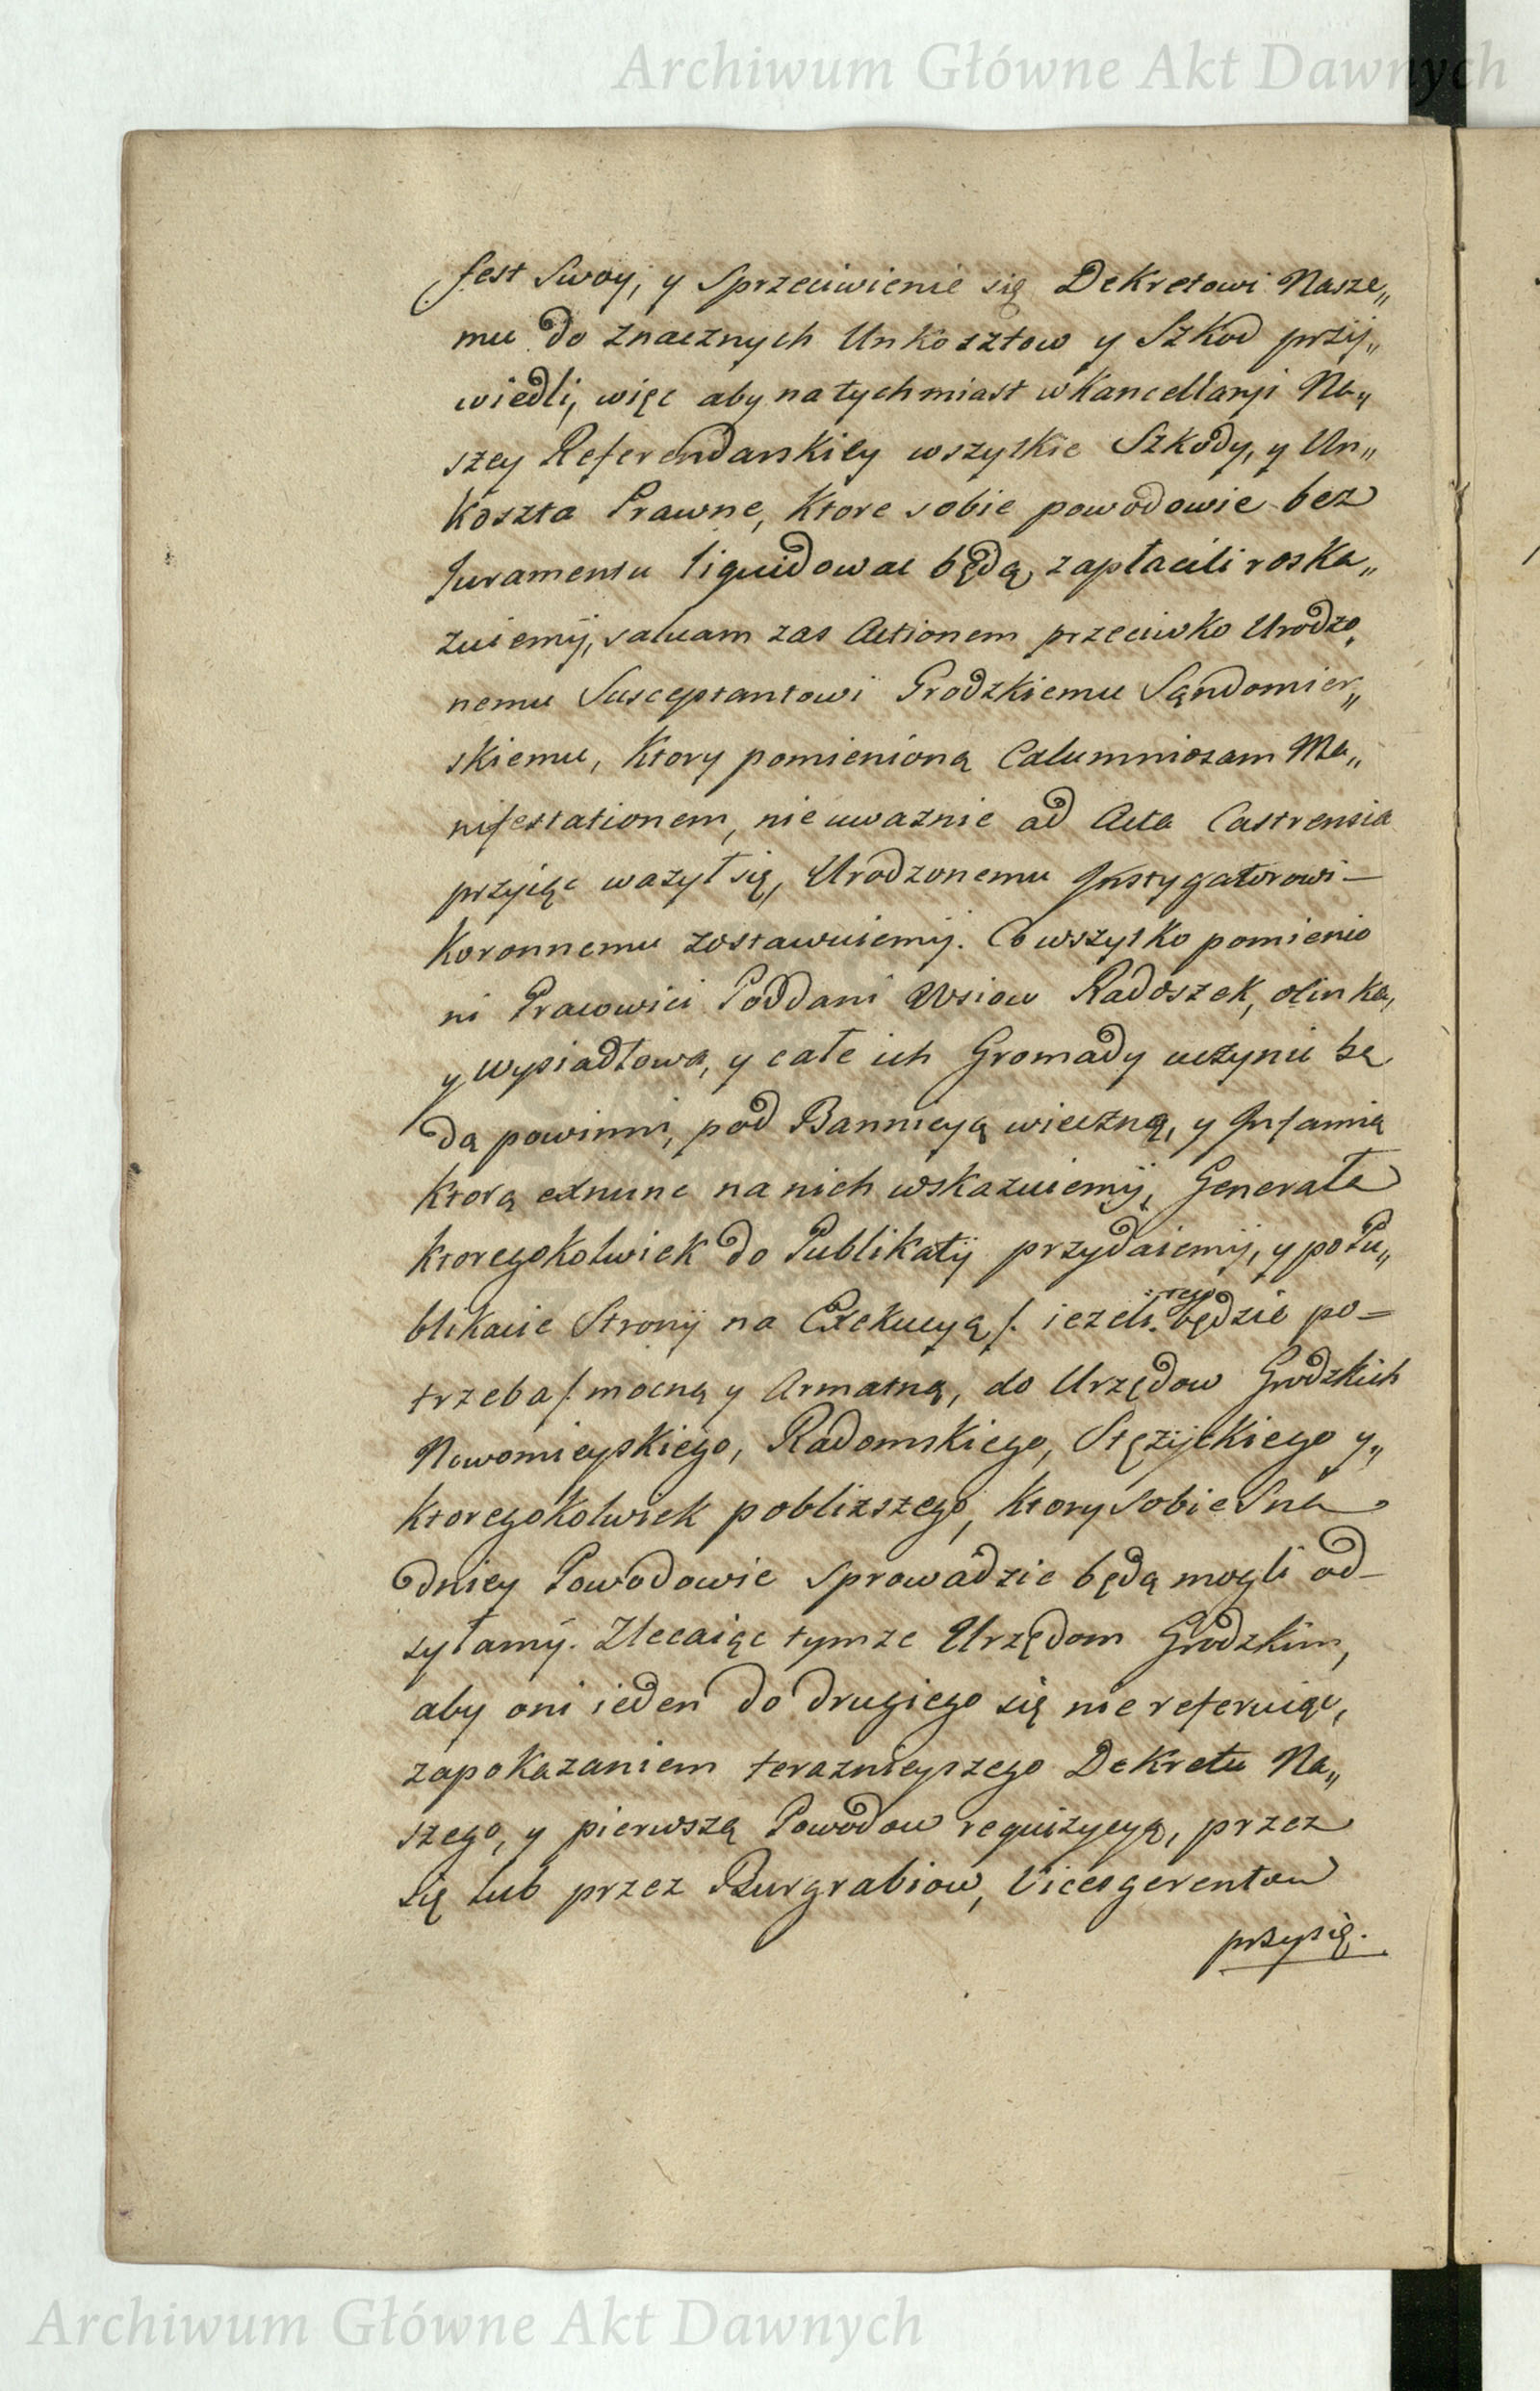 Archiwum Główne Akt Dawnych
fest Swoy, y Sprzeciwienie się Dekretowi Nasze„
mu do znacznych Unkosztow y Szkod przÿ„
wiedli, więc aby natychmiast w Kancellaryi Na„
szey Referendarskiey wszytkie Szkody, y Un„
koszta Prawne, ktore sobie powodowie bez
Juramentu liquidowac będą, zapłacili roska„
zuiemÿ, salvam zas Actionem przeciwko Urodzo„
nemu Susceptantowi Grodzkiemu Sąndomier„
skiemu, ktory pomienioną Calumniosam Ma„
nifestationem, nie uwaznie ad Acta Castrensia
przyiąc wazył się, Urodzonemu Instygatorowi —
Koronnemu zostawuiemÿ. Co wszytko pomienio
ni Pracowici Poddani Wsiow Radoszek, olinka,
y Wysiadłowa, y całe ich Gromady uczynic bę
dą powinni, pod Bannicyą wieczną, y Infamią
ktorą exnunc na nich wskazuiemÿ, Generała
ktoregokolwiek do Publikatÿ przydaiemÿ, y po Pu„
blikacie Stronÿ na Exekucyą /. iezeli tego będzie po=
trzeba /. mocną y Armatną, do Urzędow Grodzkich
Nowomieyskiego, Radomskiego, Stęzyckiego y„
ktoregokolwiek poblizszego, ktory sobie Sna
dniey Powodowie sprowadzic będą mogli od_
syłamÿ. Zlecaiąc tymze Urzędom Grodzkim,
aby oni ieden do drugiego się nie referuiąc,
za pokazaniem teraznieyszego Dekretu Na„
szego, y pierwszą Powodow requizycyą, przez
się lub przez Burgrabiow, Vicesgerentow
przysię.
Archiwum Główne Akt Dawnych